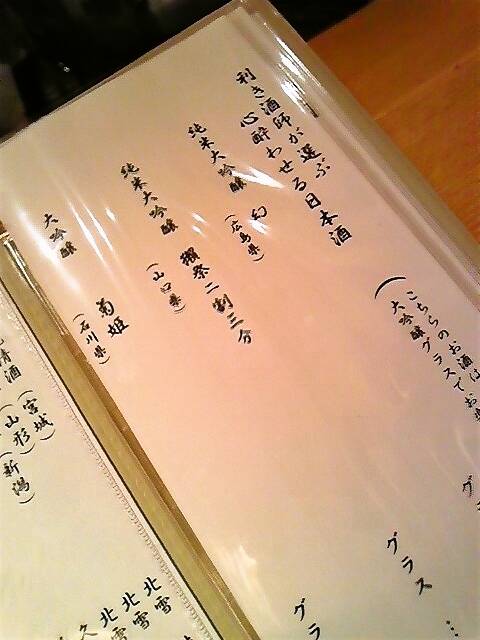 利き酒師が選ぶ
心酔わせる日本酒
(こちらのお酒は
大吟醸グラスでお
純米大吟醸 幻
(広島県)
グラス…
純米大吟醸 獺祭二割三分
(山口県)
グラ
大吟醸 菊姫
(石川県)
清酒
(宮城)
(山形)
(新潟)
北雪
北雪
北雪
久